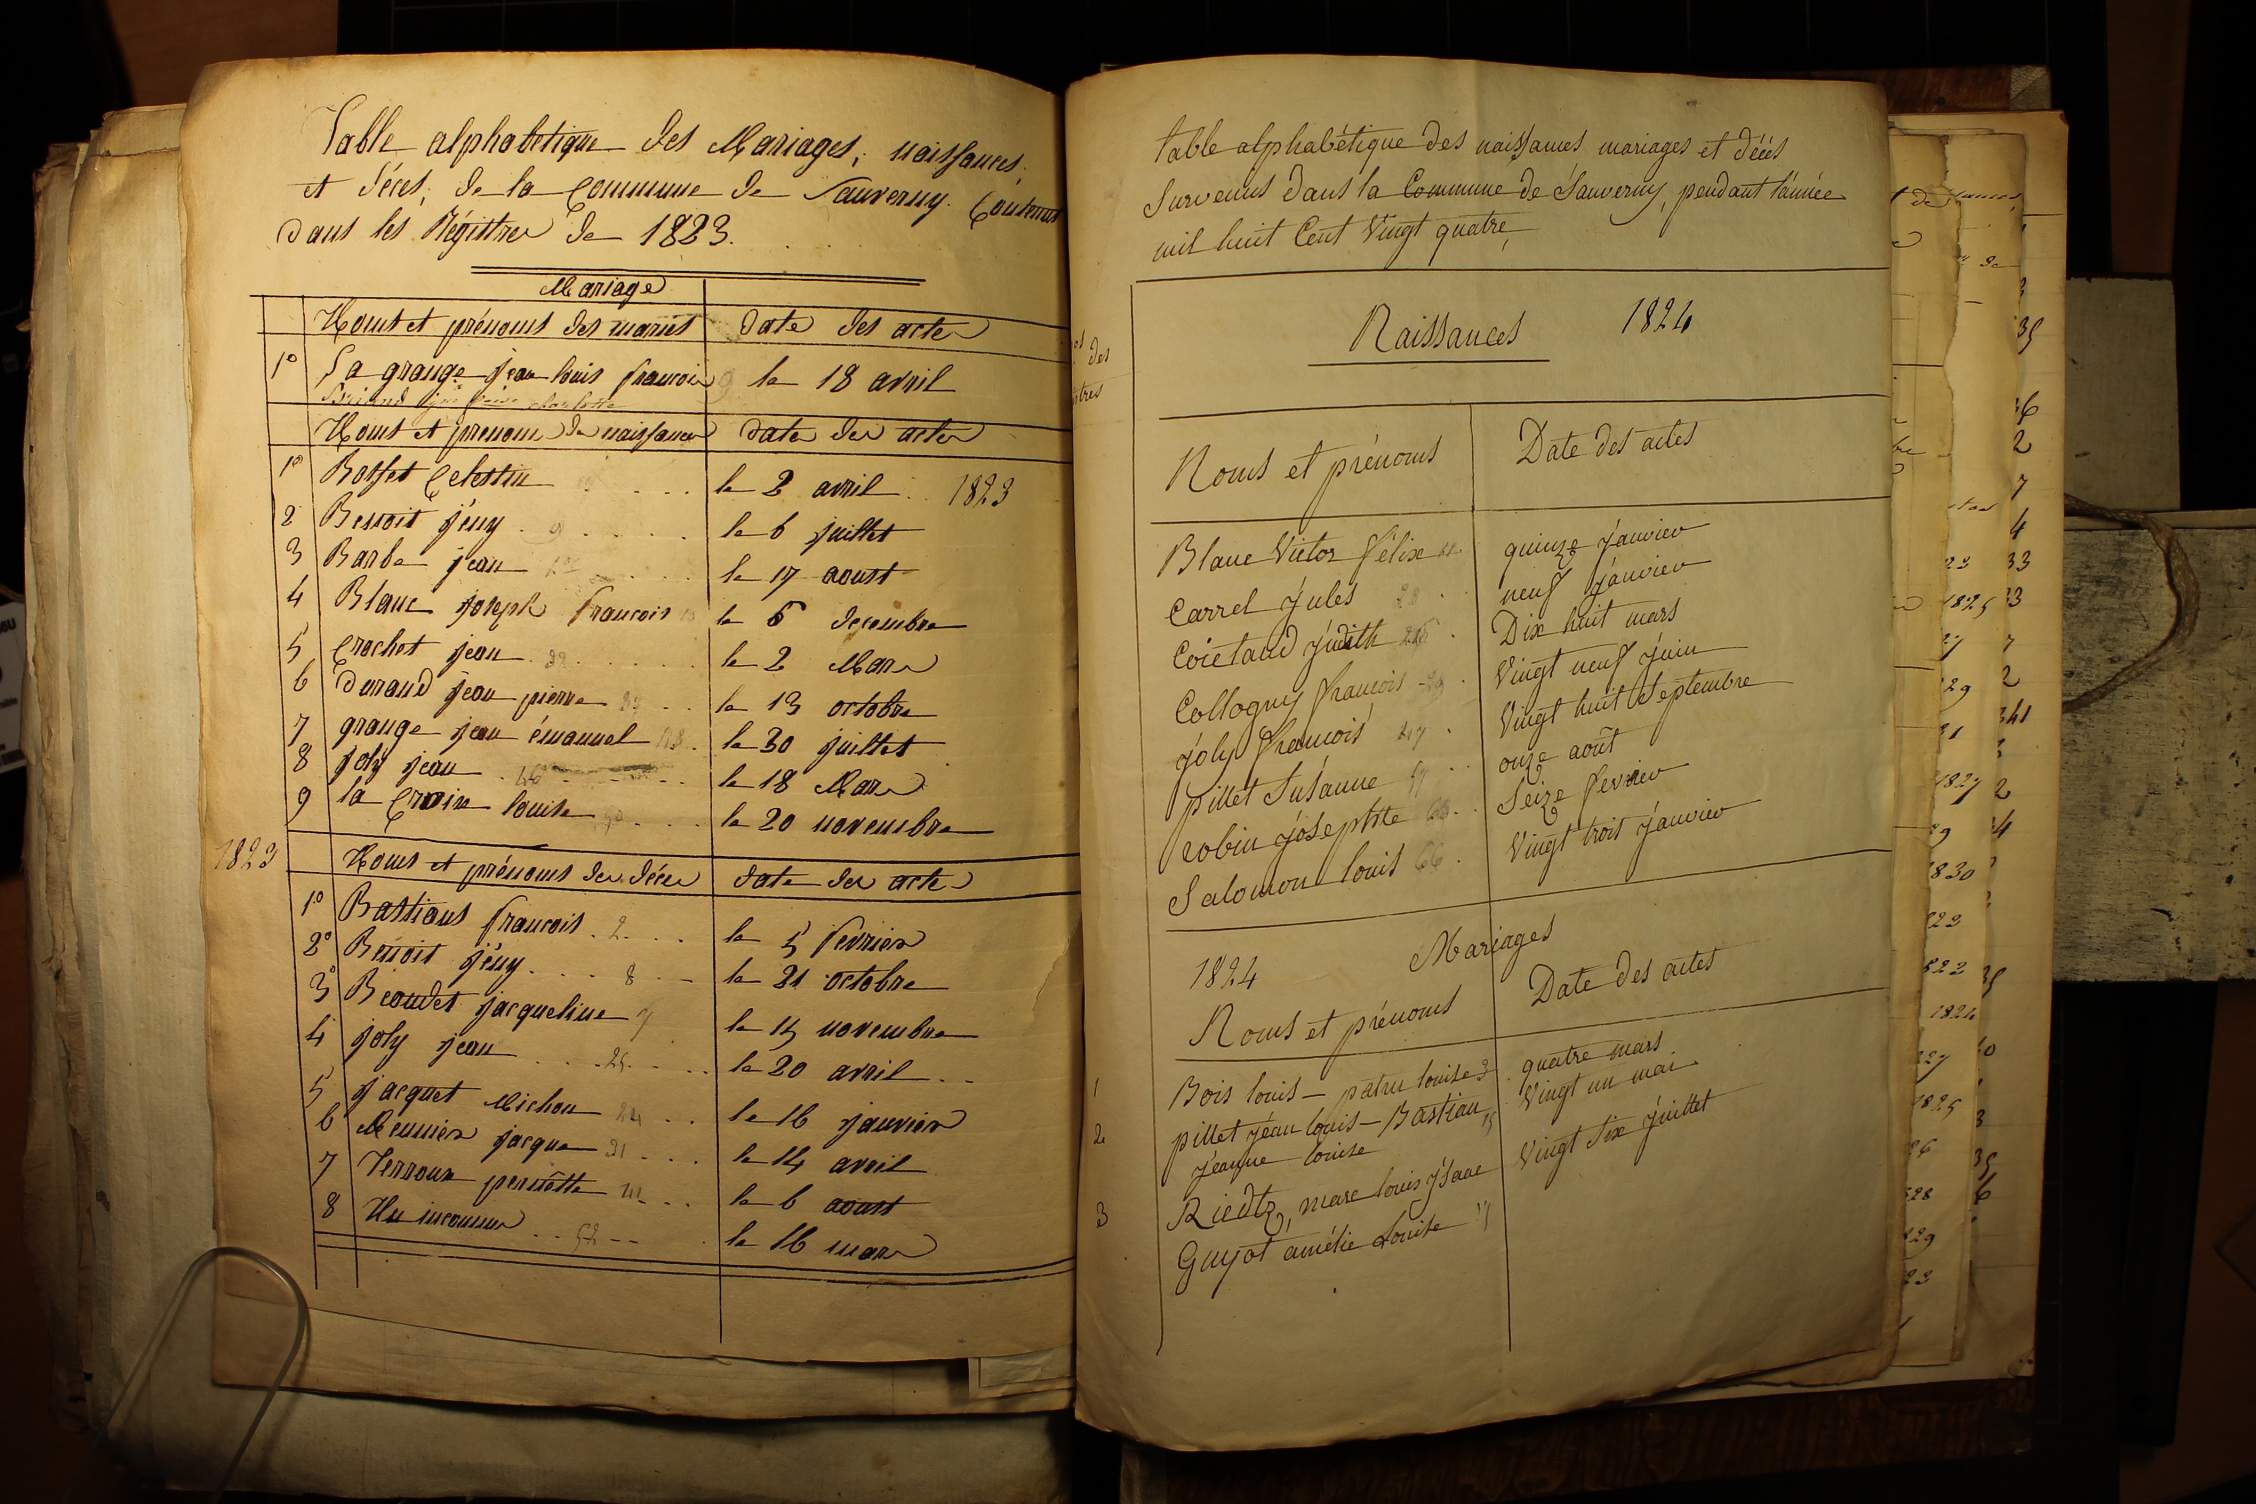 Table alphabetique des Mariages, naissances,
et Déces, de la Commune de Sauverny. Contenus
dans les Régistres de 1823.
Mariage
Noms et prénoms des mariés date des actes
1° La grange jean louis francois le 18 avril
charlotte
Noms et prenoms de naissances date des actes
1° Bosset Celestin le 2 avril 1823
2 Benoit jény 9 le 6 juillet
3 Barbe jean le 17 aoust
4 Blanc joseph francois le 6 decembre
5 Crochet jean le 2 Mars
6 durand jean pierre le 13 octobre
7 grange jean émanuel le 30 juillet
8 joly jean 46 le 18 Mars
9 la Croix louise le 20 novembre
1823
Noms et prénoms des déces date des actes
1° Bastians francois 2 le 5 fevrier
2° Benoit jény 8 le 21 octobre
3° jacqueline le 15 novembre
4 joly jean 25 le 20 avril
5 jacquet Michou 24 le 16 janvier
6 Meunier jacque 31 le 14 avril
7 Verroux pernette le 6 aoust
8 Un inconnu 52 le 16 mars
table alphabétique des naissances mariages et décès
Survenus dans la Commune de Sauverny, pendant l'année
mil huit Cent Vingt quatre,
Naissances 1824
Noms et prénoms Date des actes
Blanc Victor félix quinze janvier
Carrel jules 28 neuf janvier
Coietaud judith Dix huit mars
Collogny francois 29 Vingt neuf juin
joly francois 47 Vingt huit Septembre
pillet Susanne onze août
robin josephte Seize fevrier
Salomon louis 66 Vingt trois janvier
1824 Mariages
Noms et prénoms Date des actes
1 Bois louis – patru louise 3 quatre mars
2 pillet jean louis – Bastian 15 Vingt un mai
jeanne louise
3 Riedtz, marc louis jsaac Vingt Six juillet
Guyot amélie Louise